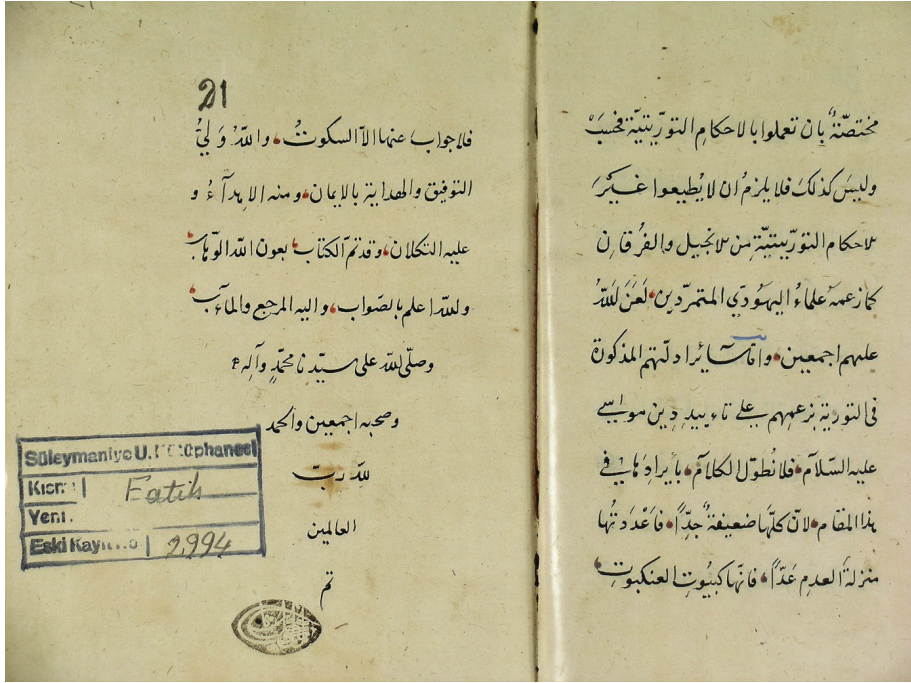 مختصّةٌ بان تعملوا بالاحكام التورٰيتيّة فحَسبْ
وليسَ كذلكَ فلا يلزمُ ان لا يُطيعوا غَيْرَ
الاحكام التورٰيتيّة من الانجيل والفُرقان
كما زعمهُ علماءُ اليهوديّ المتمردين لَعَنَ اللّٰهُ
عليهم اجمعين وامّا سائر ادلّتهم المذكورة
فى التورية بزعمهم على تاءييد دين موسى
عليه السّلام فلا نُطوّل الكلام بأيرادها فى
هذا المقام لانّ كلّها ضعيفةٌ جدًّا فاعْدَدتُها
منزلةَ العدم عَدًّا فانّها كبيُوتِ العنكبوتِ
21
فلا جوابَ عنها الاّ السكوتُ واللّٰهُ وَلِيُّ
التوفيق والهداية بالايمان ومنه الابدآءُ و
عليه التكلان وقد تمّ الكتاب بعون اللّٰه الوهاب
واللّٰه اعلم بالصّواب واليه المرجع والمآب
وصلّى اللّٰه على سيّدنا محمّدٍ وآله
وصحبه اجمعين والحمد
للّٰه ربّ
العالمين
تم
Süleymaniye U. Kütüphanesi
Kısmı Fatih
Yeni
Eski Kayıt No 2994